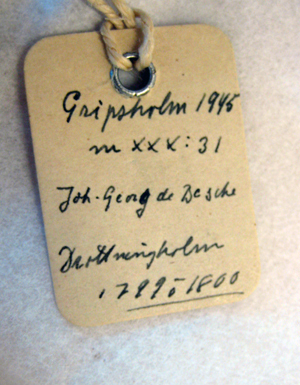 Gripsholm 1945
m XXX:31
Joh. Georg de Besche
Drottningholm
1799-1800